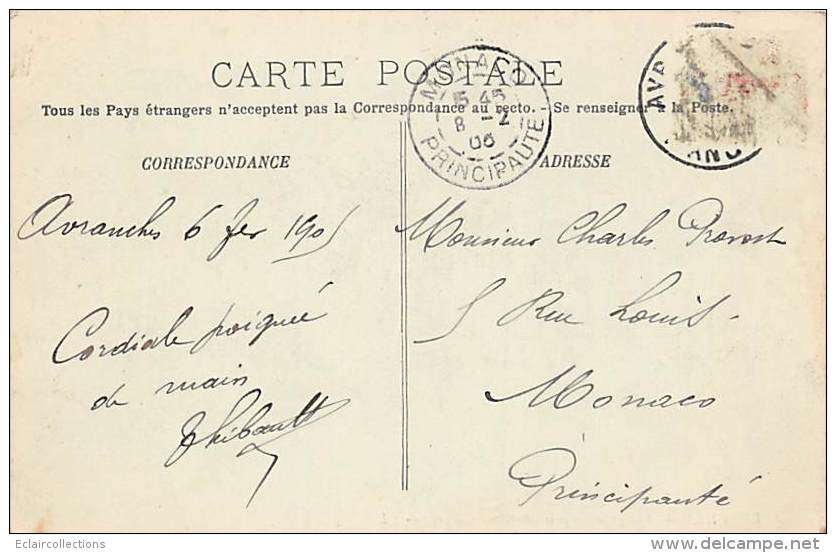 CARTE POSTALE
Tous les Pays étrangers n'acceptent pas la Correspondance au recto. - Se renseigner à la Poste.
MONACO
5 45
8 - 2
06
PRINCIPAUTÉ
AVR
CORRESPONDANCE
ADRESSE
Avranches 6 fev 1905
Cordiale poignée
de main
Thibault
Monsieur Charles Provost
5 Rue Louis
Monaco
Principauté
Eclaircollections
delcampe.net